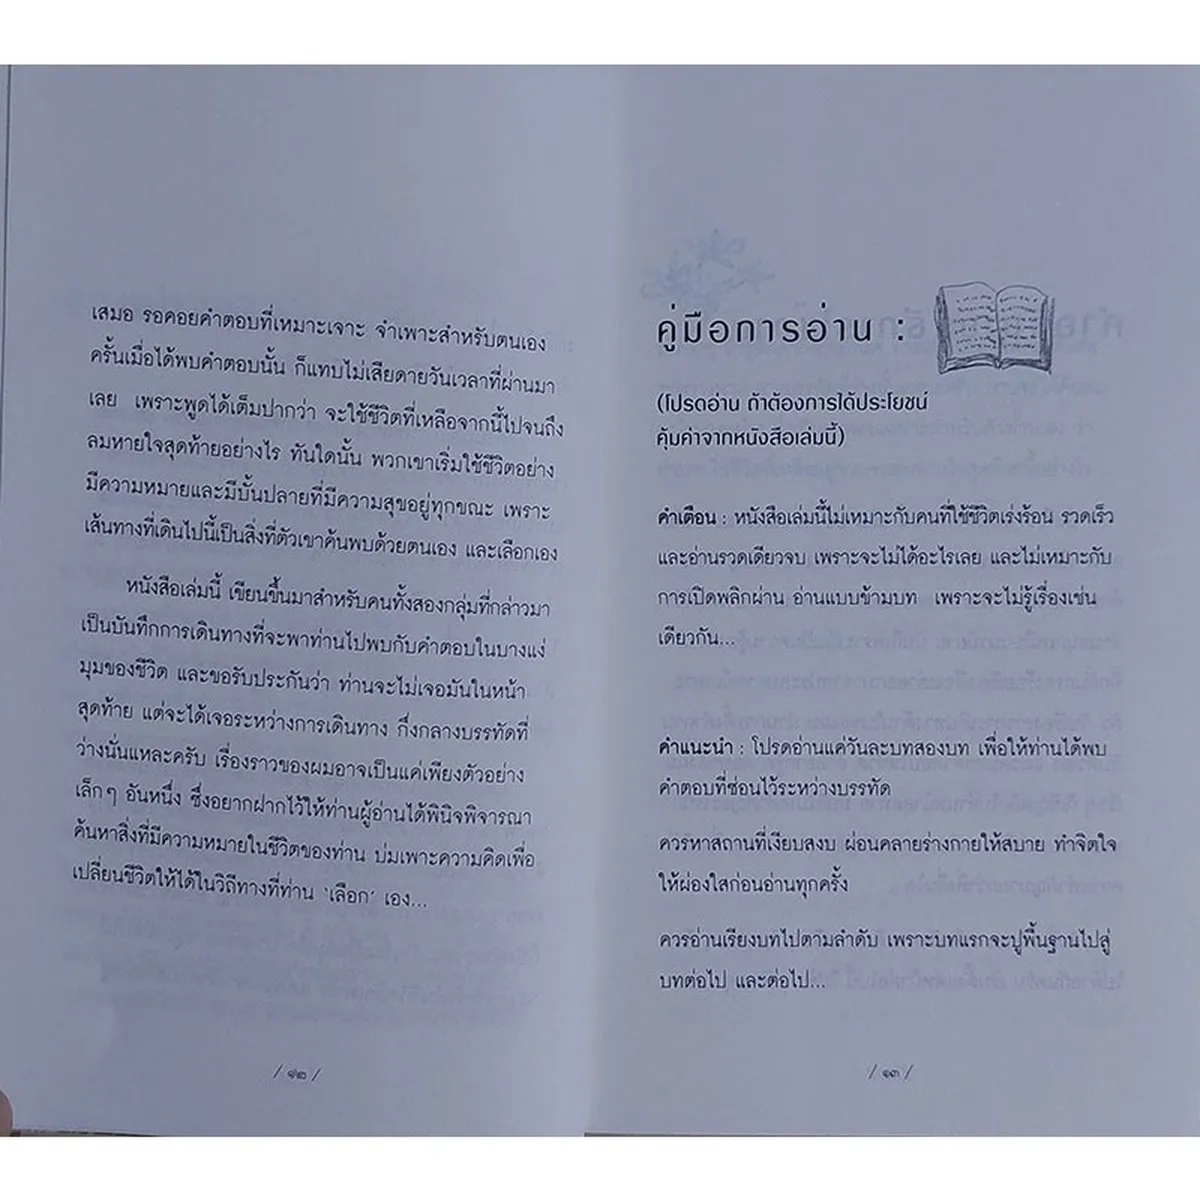 เสมอ รอคอยคำตอบที่เหมาะเจาะ จำเพาะสำหรับตนเอง
ครั้นเมื่อได้พบคำตอบนั้น ก็แทบไม่เสียดายวันเวลาที่ผ่านมา
เลย เพราะพูดได้เต็มปากว่า จะใช้ชีวิตที่เหลือจากนี้ไปจนถึง
ลมหายใจสุดท้ายอย่างไร ทันใดนั้น พวกเขาเริ่มใช้ชีวิตอย่าง
มีความหมายและมีบั้นปลายที่มีความสุขอยู่ทุกขณะ เพราะ
เส้นทางที่เดินไปนี้เป็นสิ่งที่ตัวเขาค้นพบด้วยตนเอง และเลือกเอง
หนังสือเล่มนี้ เขียนขึ้นมาสำหรับคนทั้งสองกลุ่มที่กล่าวมา
เป็นบันทึกการเดินทางที่จะพาท่านไปพบกับคำตอบในบางแง่
มุมของชีวิต และขอรับประกันว่า ท่านจะไม่เจอมันในหน้า
สุดท้าย แต่จะได้เจอระหว่างการเดินทาง กึ่งกลางบรรทัดที่
ว่างนั่นแหละครับ เรื่องราวของผมอาจเป็นแค่เพียงตัวอย่าง
เล็กๆ อันหนึ่ง ซึ่งอยากฝากไว้ให้ท่านผู้อ่านได้พินิจพิจารณา
ค้นหาสิ่งที่มีความหมายในชีวิตของท่าน บ่มเพาะความคิดเพื่อ
เปลี่ยนชีวิตให้ได้ในวิถีทางที่ท่าน 'เลือก' เอง...
/ ๑๒ /
คู่มือการอ่าน :
(โปรดอ่าน ถ้าต้องการได้ประโยชน์
คุ้มค่าจากหนังสือเล่มนี้)
คำเตือน : หนังสือเล่มนี้ไม่เหมาะกับคนที่ใช้ชีวิตเร่งร้อน รวดเร็ว
และอ่านรวดเดียวจบ เพราะจะไม่ได้อะไรเลย และไม่เหมาะกับ
การเปิดพลิกผ่าน อ่านแบบข้ามบท เพราะจะไม่รู้เรื่องเช่น
เดียวกัน...
คำแนะนำ : โปรดอ่านแค่วันละบทสองบท เพื่อให้ท่านได้พบ
คำตอบที่ซ่อนไว้ระหว่างบรรทัด
ควรหาสถานที่เงียบสงบ ผ่อนคลายร่างกายให้สบาย ทำจิตใจ
ให้ผ่องใสก่อนอ่านทุกครั้ง
ควรอ่านเรียงบทไปตามลำดับ เพราะบทแรกจะปูพื้นฐานไปสู่
บทต่อไป และต่อไป...
/ ๑๓ /